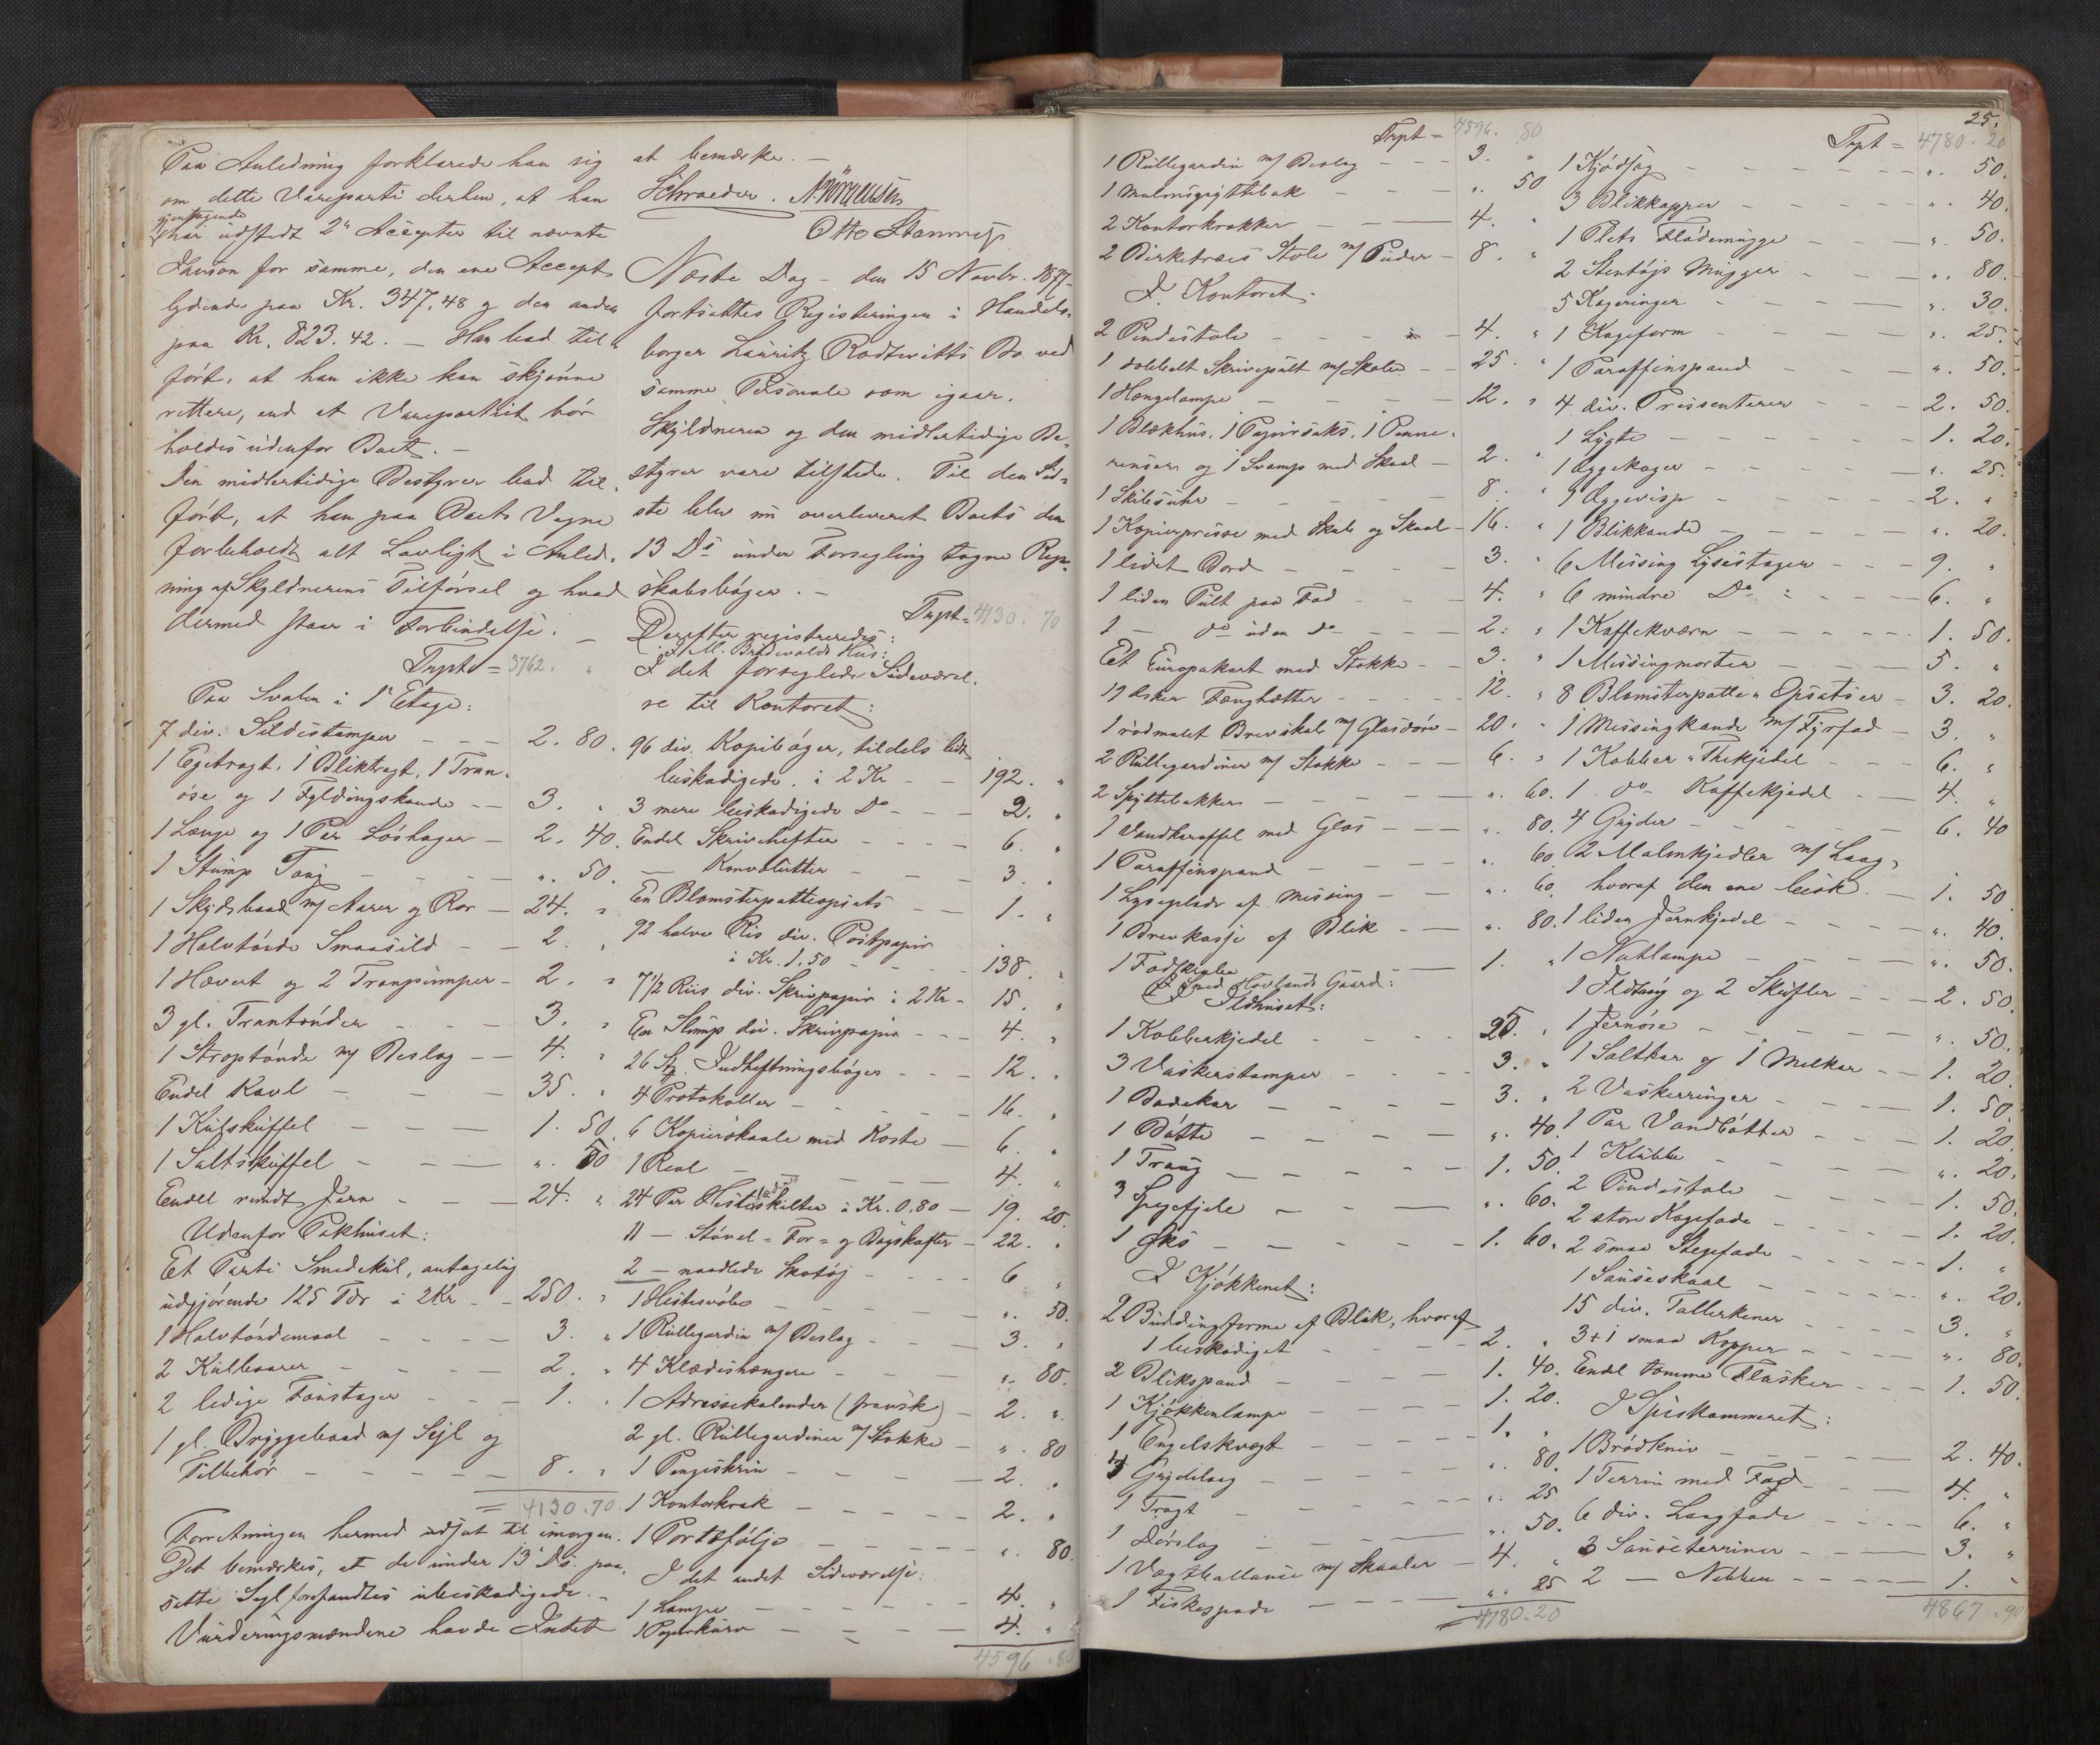 Paa Anledning forklarede han sig
om dette Vareparti derhen, at han
gjentagende
har udstedt 2de Accepter til nævnte
for samme, den ene Accept
lydende paa Kr. 347,48 og den anden
paa Kr. 823.42. – Han bad til-
ført, at han ikke kan skjønne
rettere, end at Varepartiet bør
holdes udenfor Boet. –
Den midlertidige Bestyrer bad til-
ført, at han paa Boets Vegne
forbeholdt alt Lovligt i Anled-
ning af Skyldnerens Tilførsel og hvad
dermed staar i Forbindelse. –
Trspt = 3762. "
Paa Svalen i 1ste Etage:
7 div. Sildestamper – – – 2. 80.
1 Egetragt, 1 Bliktragt, 1 Tran-
øse og 1 Fyldingskande – – 3. "
1 Længe og 1 Par Løshager – 2. 40.
1 Stump Toug – – – ". 50.
1 Skydsbaad m/ Aarer og Ror – 24. "
1 Halvtønde Smaasild – – 2. "
1 Hævert og 2 Tranpumper – 2. "
3 gl. Trantønder – – – 3. "
1 Stroptønde m/ Beslag – – 4. "
Endel Kavl – – – 35. "
1 Kulskuffel – – – 1. 50.
1 Saltskuffel – – – ". 50
Endel rundt Jern – – – 24. "
Udenfor Pakhuset:
Et Parti Smedekul, antagelig
udgjørende 125 Tdr à 2 Kr – – 250. "
1 Halvtøndemaal – – – – 3. "
2 Kulbaarer – – – – 2. "
2 ledige Foustager – – – 1. "
1 gl. Bryggebaad m/ Sejl og
Tilbehør – – – – – 8. "
= 4130.70
Forretningen hermed udsat til imorgen.
Det bemærkes, at de under 13 Ds. paa-
satte Segl forefandtes ubeskadigede. –
Vurderingsmændene havde Intet
at bemærke. –
Schroeder. N. Børgensen
Otto Stammes
Næste Dag – den 15 Novbr. 1877 –
fortsattes Registeringen i Handels-
borger Lauritz Rodtwitts Bo ved
samme Personale som igaar.
Skyldneren og den midlertidige Be-
styrer vare tilstede. Til den Sid-
ste blev nu overleveret Boets den
13 Ds under Forsegling tagne Regn-
skabsbøger. –
Trspt = 4130. 70
Derefter registreredes:
I M. Brodwalds Hus:
I det forseglede Sideværel-
se til Kontoret:
96 div. Kopibøger, tildels lidt
beskadigede, à 2 Kr – – 192. "
3 mere beskadigede Do – – – 2. "
Endel Skrivehefter – – – – 6. "
– Konvolutter – – – 3. "
En Blomsterpotteopsats – – 1. "
92 halve Ris div. Postpapir
à Kr. 1.50 – – – – 138. "
7½ Riis div. Skrivpapir à 2 Kr – 15. "
En Slump div. Skrivpapir – – 4. "
26 St. Indheftningsbøger – – – 12. "
4 Protokoller – – – – – 16. "
6 Kopierskaale med Koste – 6. "
1 Reol – – – – 4. "
24 Par Hestesko à Kr. 0,80 – 19. 20.
11 – Støvel- For- og Bagskafter – 22. "
2 – naadlede Skotøj – – – – 6. "
1 Hestesvøbe – – – – – ". 50.
1 Rullegardin m/ Beslag – – – 3. "
4 Klædeshængere – – – – ". 80.
1 Adressekalender (fransk) – 2. ".
2 gl. Rullegardiner m/ Stokke – ". 80
1 Pengeskrin – – – – 2. "
1 Kontorkrak – – – – 2. "
1 Portefølje – – – – ". 80.
I det andet Sideværelse:
1 Lampe – – – – – 4. "
1 Papirkurv – – – – 4. "
4596.80
25.
Trspt = 4596. 80
1 Rullegardin m/ Beslag – – – 3. "
1 malmspyttebak – – – ". 50
2 Kontorkrakker – – – 4. "
2 Birketræes Stole m/ Puder – 8. "
I Kontoret:
2 Pindestole – – – – 4. "
1 dobbelt Skrivepult m/ Skabe – – 25. "
1 Hængelampe – – – – 12. "
1 Blækhus, 1 Papirsaks, 1 Penne-
renser og 1 Svamp med Skaal – 2. "
1 Skibsuhr – – – – – 8. "
1 Kopierpresse med Skab og Skaal – 16. "
1 lidet Bord – – – – 3. "
1 liden Pult paa Fod – – – 4. "
1 – do uden do – – – – 2. "
Et Europakart med Stokke – – 3. "
19 Æsker Fænghætter – – – – 12. "
1 rødmalet Brevskab m/ Glasdøre – 20. "
2 Rullegardiner m/ Stokke – – – 6. "
2 Spyttebakker – – – – – ". 60.
1 Vandkaraffel med Glas – – – ". 80.
1 Paraffinspand – – – – ". 60.
1 Lyseplade af Messing – – – ". 60.
1 Brevkasse af Blik – – – ". 80.
1 Fodskrabe – – – – 1. "
I Smed Hovlands Gaard:
I Ildhuset:
1 Kobberkjedel – – – – 25. "
3 Vaskerstamper – – – – 3. "
1 Badekar – – – – – 3. "
1 Bøtte – – – – – ". 40.
1 Traug – – – – – 1. 50.
3 Spegefjele – – – – ". 60.
1 Øks – – – – – 1. 60.
I Kjøkkenet:
2 Buddingforme af Blik, hvoraf
1 beskadiget – – – – 2. "
2 Blikspand – – – – – 1. 40.
1 Kjøkkenlampe – – – – 1. 20.
1 Engelskvægt – – – – 1. "
3 Grydelaag – – – – ". 80.
1 Tragt – – – – ". 25
1 Dørslag – – – – ". 50.
1 Vægtballance m/ Skaaler – 4. "
1 Fiskespade – – – – ". 25
= 4780.20
Trspt = 4780. 20
1 Kjødsag – – – – – ". 50.
3 Blikkopper – – – – – ". 40.
1 Plets Flødemugge – – – ". 50.
2 Stentøjs Mugger – – – ". 80.
5 Kageringer – – – – ". 30.
1 Kageform – – – – ". 25.
1 Paraffinspand – – – ". 50.
4 div. Pressenterer – – – 2. 50.
1 Lygte – – – – – 1. 20.
1 Æggekoger – – – – – ". 25.
1 Æggevisp – – – – – 2. "
1 Blikkande – – – – ". 20.
6 Messing Lysestager – – – 9. "
6 mindre Do – – – – 6. "
1 Kaffekværn – – – – – 1. 50.
1 Messingmorter – – – – 5. "
8 Blomsterpotte- Opsatser – 3. 20.
1 Messingkande m/ Fyrfad – 3. "
1 Kobber- Thekjedel – – – 6. "
1 do Kaffekjedel – – 4. "
4 Gryder – – – – – 6. 40
2 Malmkjedler m/ Laag,
hvoraf den ene besk. – – 1. 50
1 liden Jernkjedel – – – ". 40.
1 Natlampe – – – – – ". 50.
1 Ildtang og 2 Skufler – – – 2. 50.
1 Jernøse – – – – – ". 50.
1 Saltkar og 1 Melkar – – 1. 20.
2 Vaskerringer – – – – 1. 50.
1 Par Vandbøtter – – – – 1. 20.
1 Klubbe – – – – – ". 20.
2 Pindestole – – – – 1. 50.
2 store Kagefade – – – – 1. 20.
2 smaa Stegefade – – – – 1. "
1 Sauseskaal – – – – – ". 20.
15 div. Tallerkener – – – – 3. "
3 + 1 smaa Kopper – – – – ". 80.
Endel tomme Flasker – – – 1. 50.
I Spiskammeret:
1 Brødkniv – – – – – 2. 40.
1 Terrin med Fad – – – – 4. "
6 div. Laagfade – – – – 6. "
3 Sauseterriner – – – – 3. "
2 – Nebben – – – – 1. "
4867.90